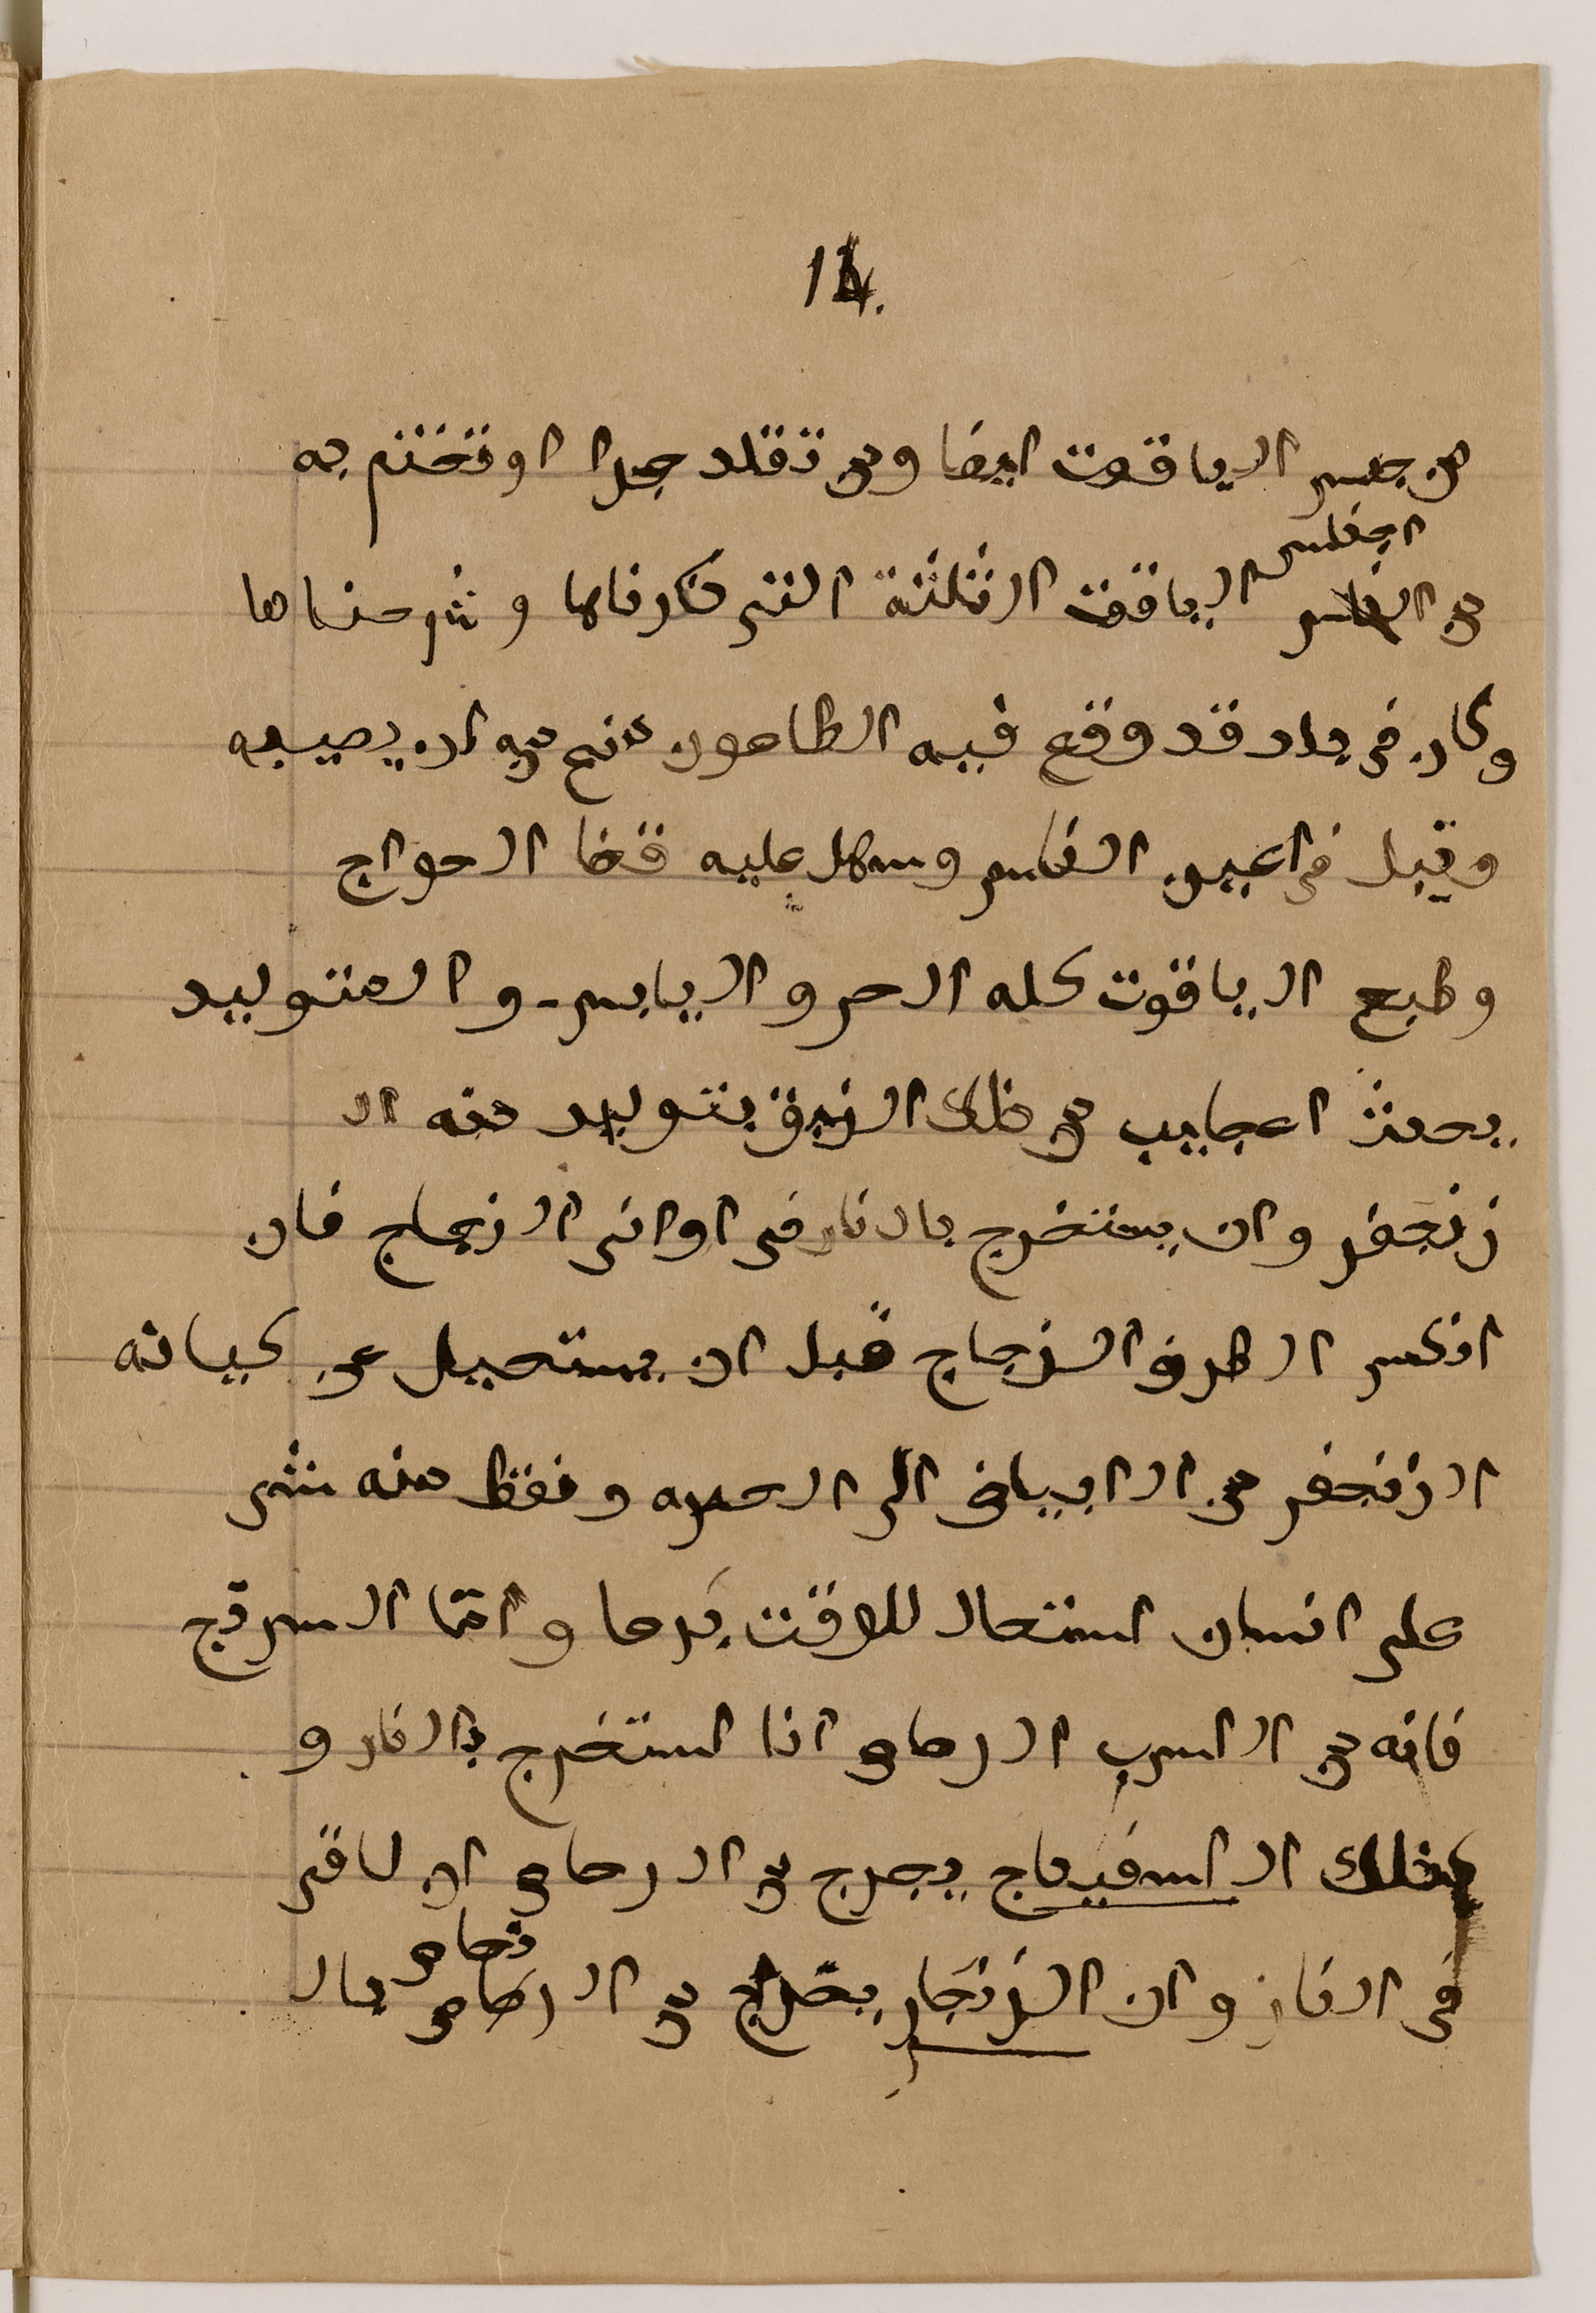 14.
من جنس الياقوت ايضا ومن تقلد حجرا او تختم به
اجناس
من الياقوت الثلثة التى ذكرناها وشرحناها
وكان فى بلد قد وقع فيه الطاعون منع منه ان يصيبه
وقبل فى اعين الناس وسهل عليه قضا الحواج
وطبع الياقوت كله الحر واليابس - والمتوليد
يحدث اعجايب من ذلك الزيبق يتوليد منه ال
زنجفر وان يستخرج بالنار فى اوانى الزجاج فان
انكسر الظرف الزجاج قبل ان يستحيل عن كيانه
الزنجفر من الابياض الى الحمره ونقط منه شى
على انسان استحال للوقت برصا واما السرنج
فانه من السرب الرصاص اذا استخرج بالنار و
كذلك الاسفيداج يخرج من الرصاص ان لاقى
نحاس
فى النار وان الزنجار يخرج من الرصاص بال